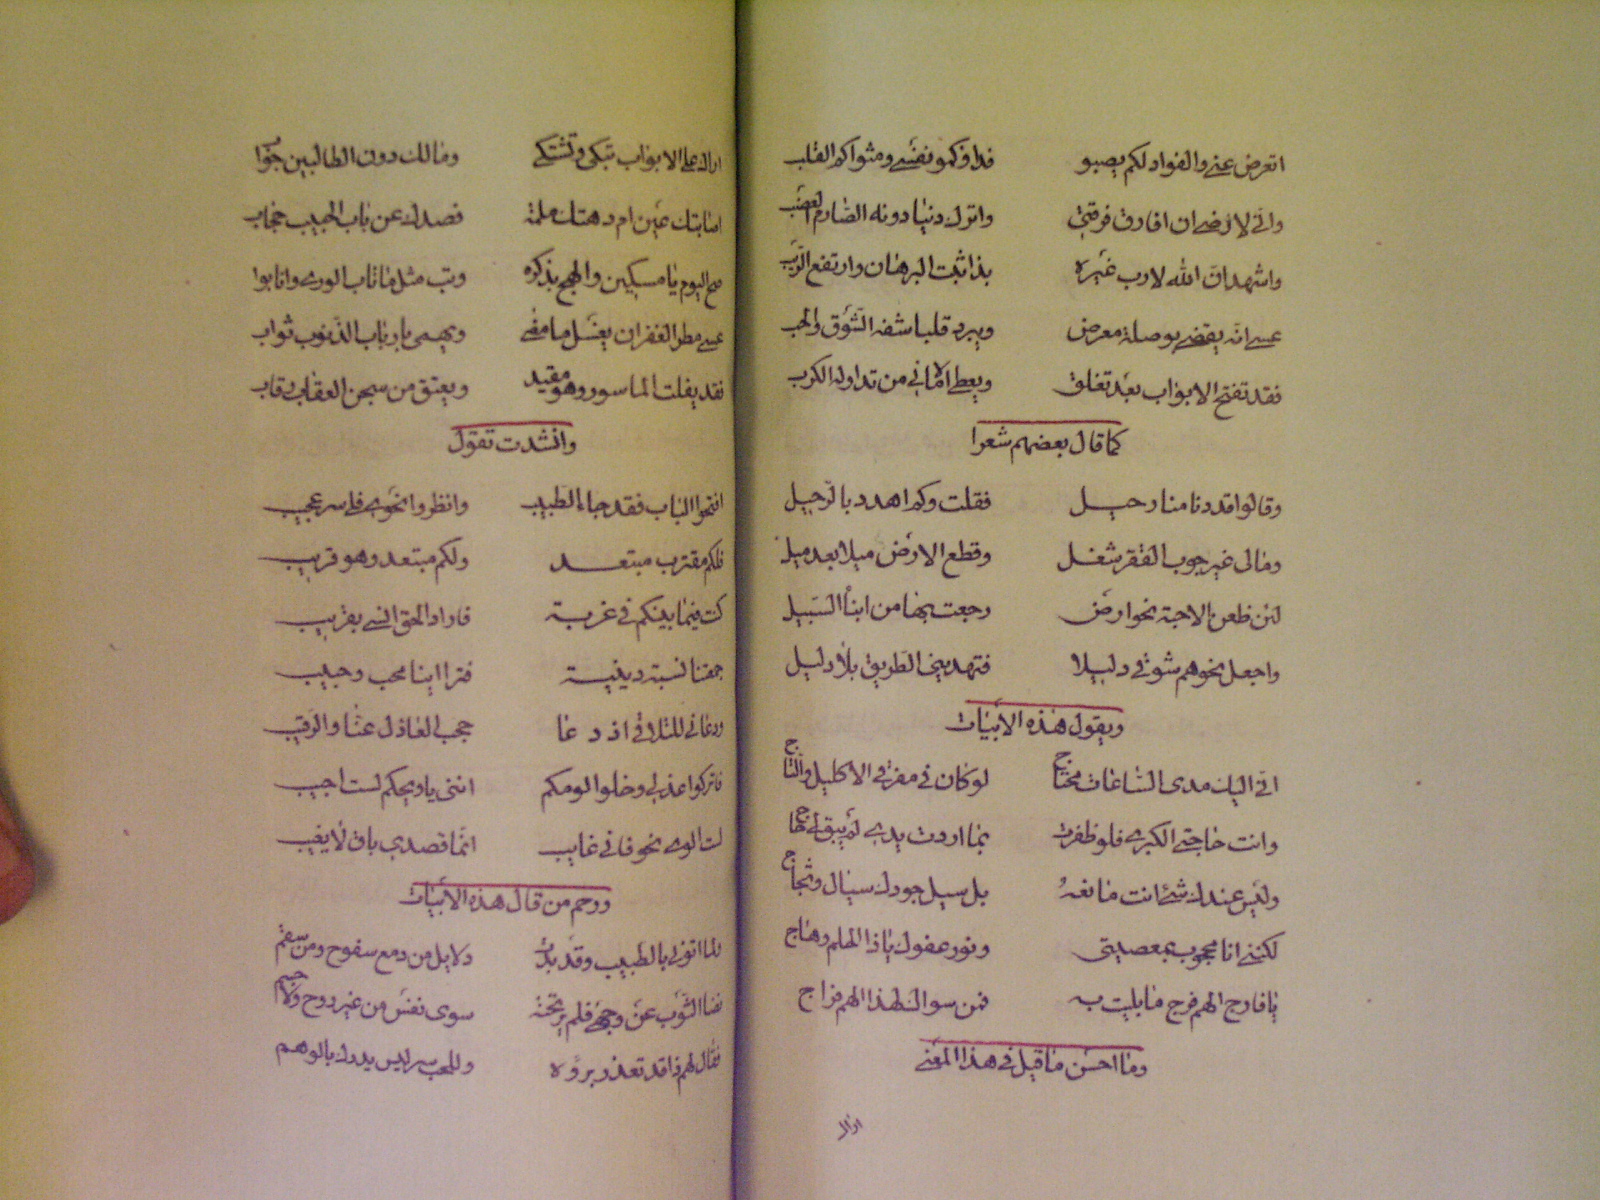 اتعرض عني والفواد لكم يصبو فدافوكمو نفسي ومثواكم القلب
واني لا ارضى ان افارق فرقتي واترك دنيا دونه الصارم العضب
واشهد ان الله لا رب غيره بذا ثبت البرهان وارتفع الريب
عسى انه يقضي بوصلة معرض ويبرد قلبا شفه الشوق والحب
فقد تفتح الابواب بعد تغلق ويعطي الاماني من تداوله الكرب
كما قال بعضهم شعرا
وقالوا قد دنا منا رحيل فقلت وكم اهدد بالرحيل
ومالي غير جوب الفقر شغل وقطع الارض ميلا بعد ميل
لئن ظعن الاحبة نحو ارض رجعت بها من ابنا السبيل
واجعل نحوهم شوقي دليلا فتهديني الطريق بلا دليل
ويقول هذه الابيات
اني اليك مدى الساعات محتاج لو كان في مفرقي الاكليل والتاج
وانت حاجتي الكبرى فلو ظفرت بما اردت يدي لم يبق لي حاج
وليس عندك شئ انت مانعه بل سيل جودك سيال وثجاج
لكنني انا محجوب بمعصيتي ونور عفوك ياذا الحلم وهاج
يا فارج الهم فرج ما بليت به فمن سواك لهذا الهم فراج
وما احسن ما قيل في هذا المعنى
اراك
اراك على الابواب تبكي وتشتكي ومالك دون الطالبين جواب
اصابتك عين ام دهتك ملمة فصدك عن باب الحبيب حجاب
صح اليوم يا مسكين والهج بذكره وتب مثل ما تاب الورى وانابوا
عسى مطر الغفران يغسل ما مضى ويهمي بارباب الذنوب ثواب
فقد يفلت الماسور وهو مقيد ويعتق من سجن العقاب رقاب
وانشدت تقول
افتحوا الباب فقد جاء الطبيب وانظروا نحوي فلي سر عجيب
فلكم مقترب مبتعد ولكم مبتعد وهو قريب
كنت فيما بينكم في غربة فاراد الحق انسي بغريب
جمعتنا نسبة دينية فترا اينا محب وحبيب
ودعاني للتلاقي اذ دعا حجب العاذل عنا والرقيب
فاتركوا عذلي وخلوا لومكم انني يا ويحكم لست اجيب
لست الوي نحو فاني غايب انما قصدي باق لا يغيب
ورحم من قال هذه الابيات
لما اتوني بالطبيب وقد بدت دلايل من دمع سفوح ومن سقم
نضا الثوب عن وجهي فلم ير تحته سوى نفس من غير روح ولا جسم
فقال لهم ذا قد تعذر برؤه وللحب سر ليس يدرك بالوهم